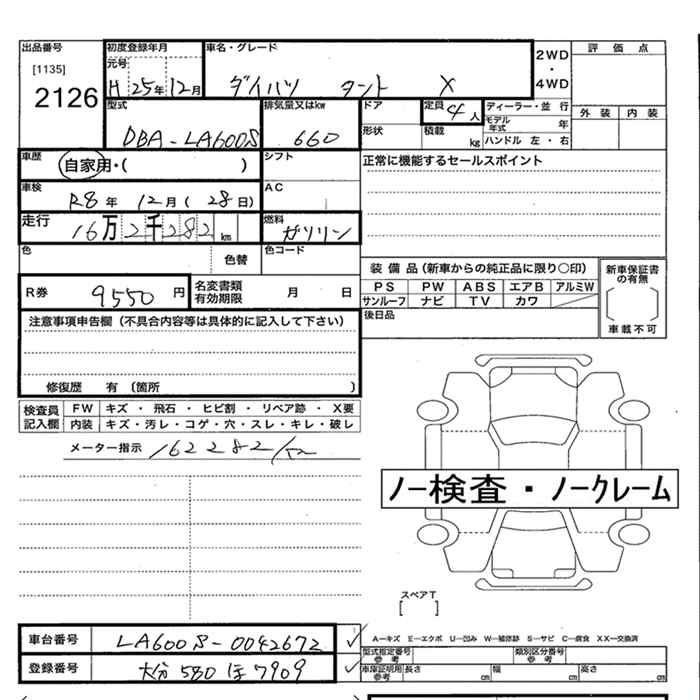 出品番号 初度登録年月 車名・グレード 評価点
[1135] 元号 2WD
2126 H 25年 12月 ダイハツ タント X ・ 4WD
型式 排気量又はkw ドア 定員 4人 ディーラー・並行 外装 内装
DBA-LA600S 660 形状 積載 kg モデル年式 年
ハンドル 左・右
車歴 自家用・( ) シフト 正常に機能するセールスポイント
車検 R8年 12月( 28日) AC
走行 16万2千282km 燃料 ガソリン
色 色替 色コード
装備品(新車からの純正品に限り○印) 新車保証書の有無
R券 9550円 名変書類有効期限 月 日 PS PW ABS エアB アルミW
サンルーフ ナビ TV カワ
注意事項申告欄(不具合内容等は具体的に記入して下さい) 後日品 車載不可
修復歴 有 (箇所 )
検査員 FW キズ・飛石・ヒビ割・リペア跡・X要
記入欄 内装 キズ・汚レ・コゲ・穴・スレ・キレ・破レ
メーター指示 162282
ノー検査・ノークレーム
スペアT
[ ]
車台番号 LA600S-0042672 A―キズ E―エクボ U―凹み W―補修跡 S―サビ C―腐食 XX―交換済
型式指定番号 参考 類別区分番号 参考
登録番号 大分 580 ほ 7909 車庫証明用 参考 長さ cm 幅 cm 高さ cm